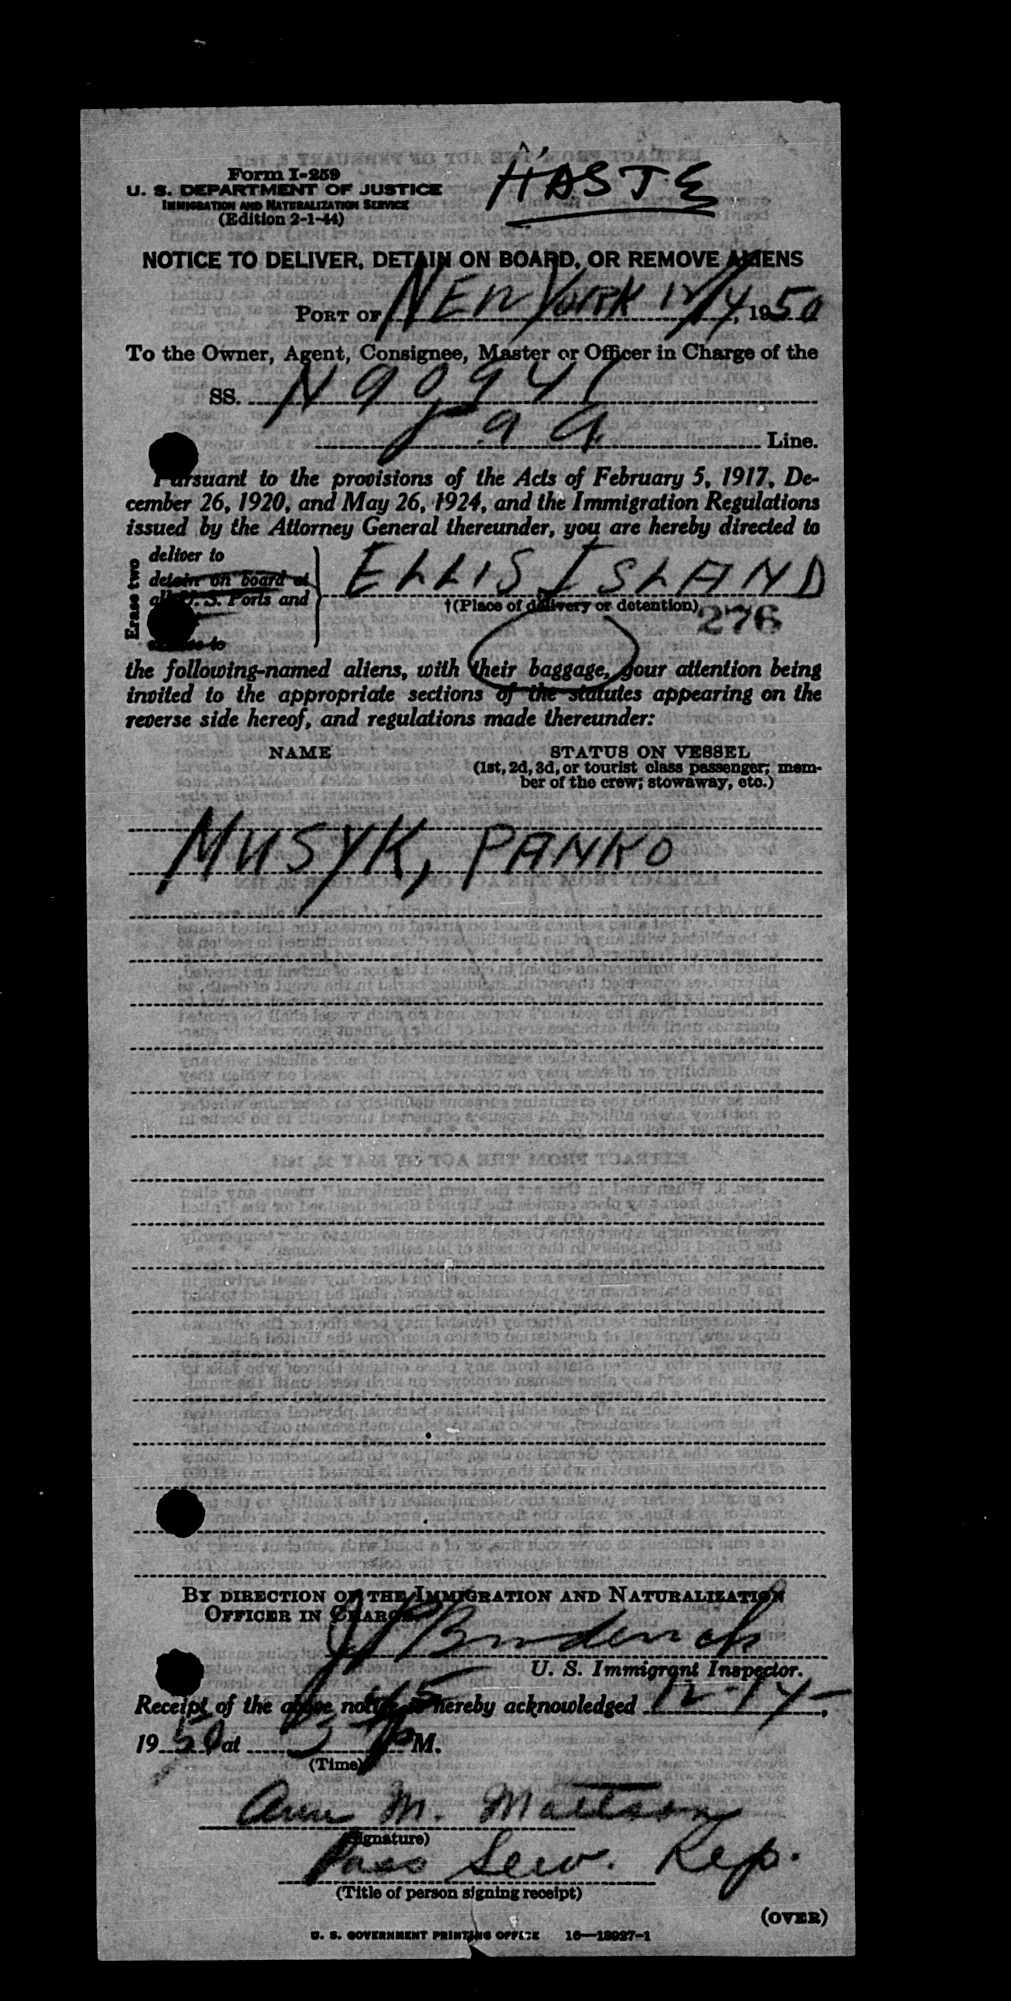 Form I-259
HASTE
U. S. DEPARTMENT OF JUSTICE
IMMIGRATION AND NATURALIZATION SERVICE
(Edition 2-1-44)
NOTICE TO DELIVER, DETAIN ON BOARD, OR REMOVE ALIENS
PORT OF NEW YORK 12/14, 1950
To the Owner, Agent, Consignee, Master or Officer in Charge of the
SS. N 90947
P a a Line.
Pursuant to the provisions of the Acts of February 5, 1917, De-
cember 26, 1920, and May 26, 1924, and the Immigration Regulations
issued by the Attorney General thereunder, you are hereby directed to
Erase two
deliver to
detain on board at
all U. S. Ports and
ELLIS ISLAND
†(Place of delivery or detention)
276
the following-named aliens, with their baggage, your attention being
invited to the appropriate sections of the statutes appearing on the
reverse side hereof, and regulations made thereunder:
NAME STATUS ON VESSEL
(1st, 2d, 3d, or tourist class passenger; mem-
ber of the crew; stowaway, etc.)
MUSYK, PANKO
BY DIRECTION OF THE IMMIGRATION AND NATURALIZATION
OFFICER IN CHARGE.
U. S. Immigrant Inspector.
Receipt of the above notice is hereby acknowledged 12-14-,
1950 at 3 45 P M.
(Time)
Ann M. Mattson
(Signature)
Pass Serv. Rep.
(Title of person signing receipt)
(OVER)
U. S. GOVERNMENT PRINTING OFFICE 16—18927-1